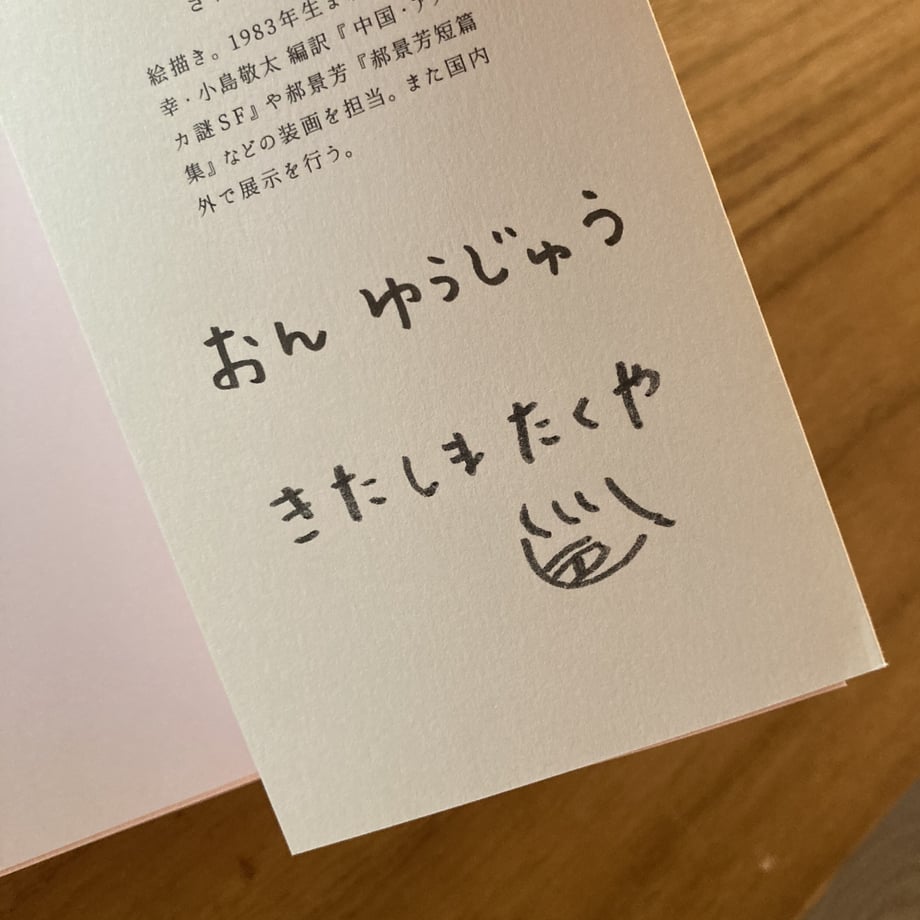 絵描き。1983年生ま
幸・小島敬太 編訳『中国・アメリ
カ謎SF』や郝景芳『郝景芳短篇
集』などの装画を担当。また国内
外で展示を行う。
おん ゆうじゅう
きたしま たくや